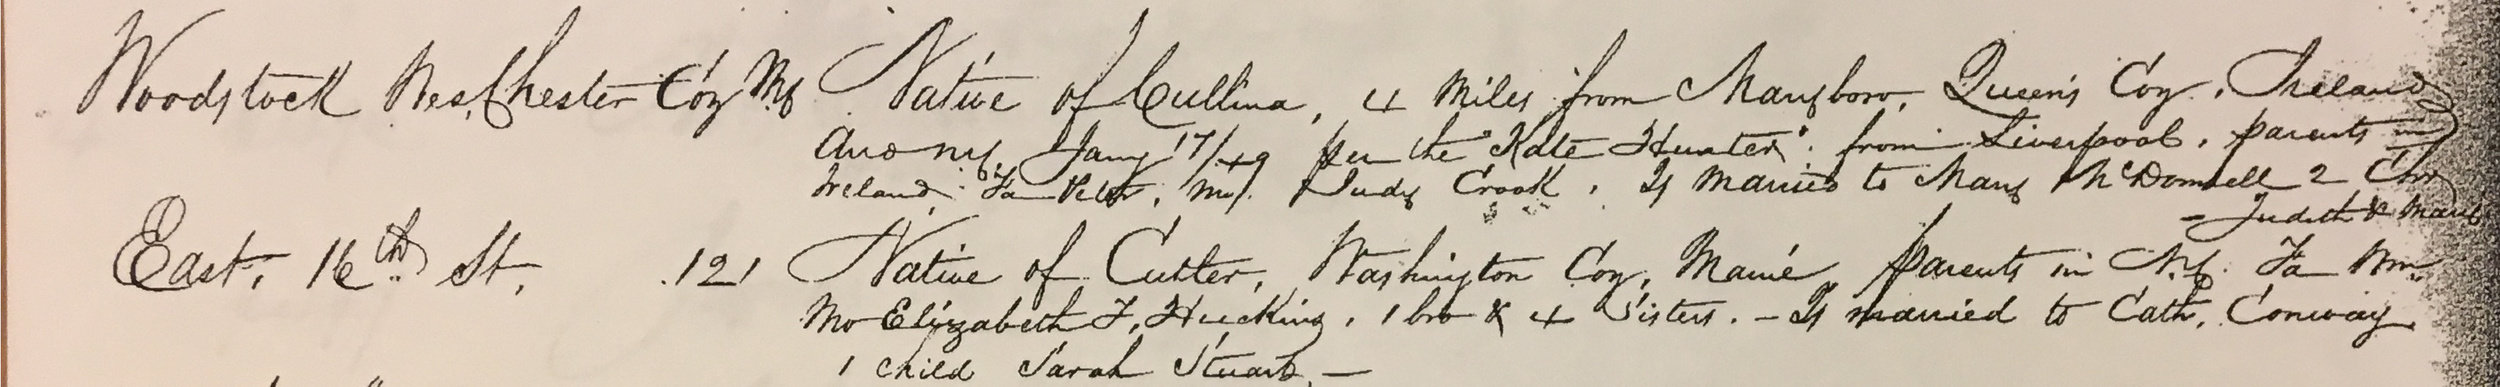 Woodstock Westchester Coy NY Native of Cullina, 4 Miles from Maryboro, Queen's Coy, Ireland
Arr'd NY. Jany 17/49 per the "Kate Hunter" from Liverpool, parents in
Ireland, Fa Peter, Mo. Judy Crook, Is married to Mary McDonnell 2 Chn
- Judith & Mary
East, 16th St, 121 Native of Cutler, Washington Coy, Maine, parents in N.Y. Fa Wm.
Mo Elizabeth F. Hucking, 1 bro & 4 Sisters. - Is married to Cath. Conway,
1 child Sarah Stuart, -